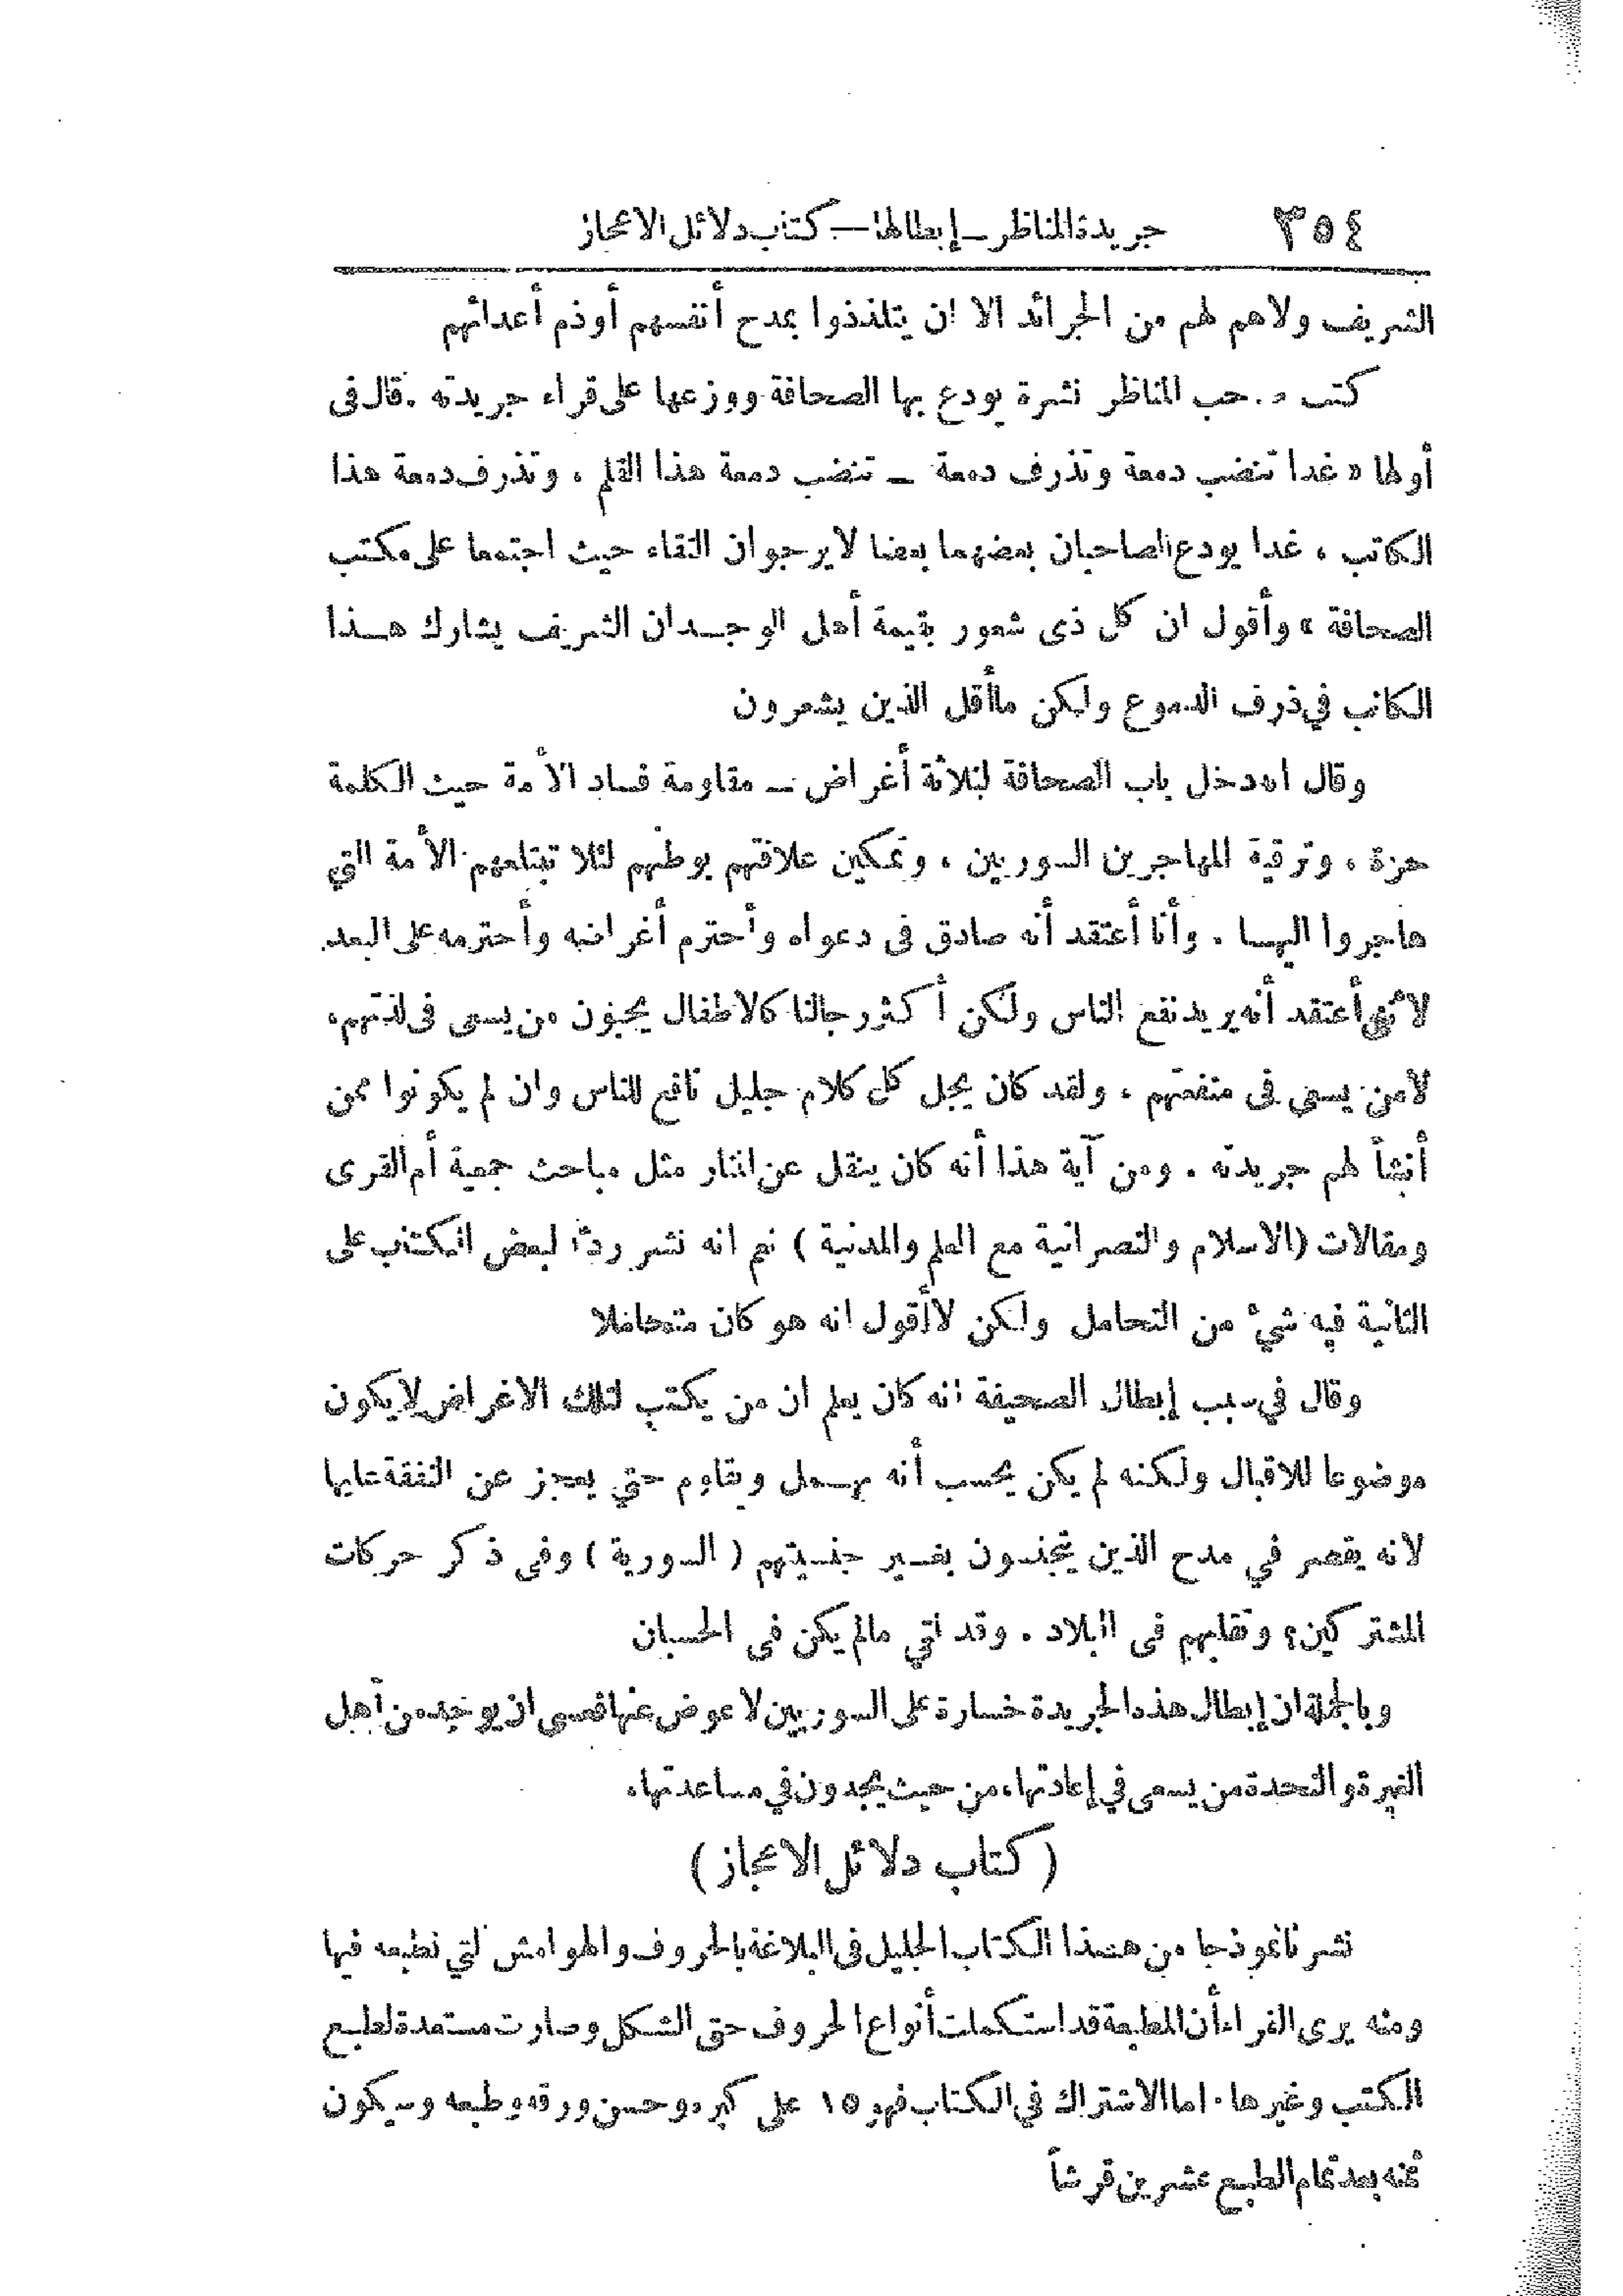 ٣٥٤ جريدة المناظر – إبطالها – كتاب دلائل الاعجاز
الشريف ولاهم لهم من الجرائد الا ان يتلذذوا بمدح أنفسهم أوذم أعدائهم
كتب حب المناظر نشرة يودع بها الصحافة ووزعها على قراء جريدته . قال فى
أولها « غدا تنضب دمعة وتذرف دمعة – تنضب دمعة هذا القلم ، وتذرف دمعة هذا
الكاتب ، غدا يودع الصاحبان بعضهما بعضا لا يرجوان التقاء حيث اجتمعا على مكتب
الصحافة » وأقول ان كل ذى شعور بقيمة أهل الوجدان الشريف يشارك هذا
الكاتب في ذرف الدموع ولكن ماأقل الذين يشعرون
وقال انه دخل باب الصحافة لثلاثة أغراض – مقاومة فساد الأمة حيث الكلمة
حرة ، وترقية المهاجرين السوريين ، وتمكين علاقتهم بوطنهم لئلا تبتلعهم الأمة التي
هاجروا اليها . وأنا أعتقد أنه صادق فى دعواه وأحترم أغراضه وأحترمه على البعد
لأني أعتقد أنه يريد نفع الناس ولكن أكثر رجالنا كالاطفال يحبون من يسعى فى لذتهم،
لامن يسعى فى منفعتهم ، ولقد كان يجل كل كلام جليل نافع للناس وان لم يكونوا ممن
أنشأ لهم جريدته . ومن آية هذا أنه كان ينقل عن المنار مثل مباحث جمعية أم القرى
ومقالات (الاسلام والنصرانية مع العلم والمدنية ) نعم انه نشر ردًا لبعض الكتاب على
الثانية فيه شيء من التحامل ولكن لاأقول انه هو كان متحاملا
وقال في سبب إبطال الصحيفة انه كان يعلم ان من يكتب لتلك الاغراض لا يكون
موضوعا للاقبال ولكنه لم يكن يحسب أنه يهمل ويقاوم حتي يعجز عن النفقة عليها
لانه يقصر في مدح الذين يتجنسون بغير جنسيتهم ( السورية ) وفى ذكر حركات
المشتركين؟ وتقلبهم فى البلاد . وقد اتي مالم يكن فى الحسبان
وبالجملة ان إبطال هذه الجريدة خسارة على السوريين لا عوض عنها فعسى ان يوجد من أهل
الغيرة والنجدة من يسعى في إعادتها، من حيث يجدون في مساعدتها،
( كتاب دلائل الاعجاز )
نشرنا نموذجا من هذا الكتاب الجليل فى البلاغة بالحروف والهوامش التي نطبعه فيها
ومنه يرى القراء أن المطبعة قد استكملت أنواع الحروف حتى الشكل وصارت مستعدة لطبع
الكتب وغيرها . اما الاشتراك في الكتاب فهو ١٥ على كبره وحسن ورقه وطبعه وسيكون
ثمنه بعد تمام الطبع عشرين قرشاً